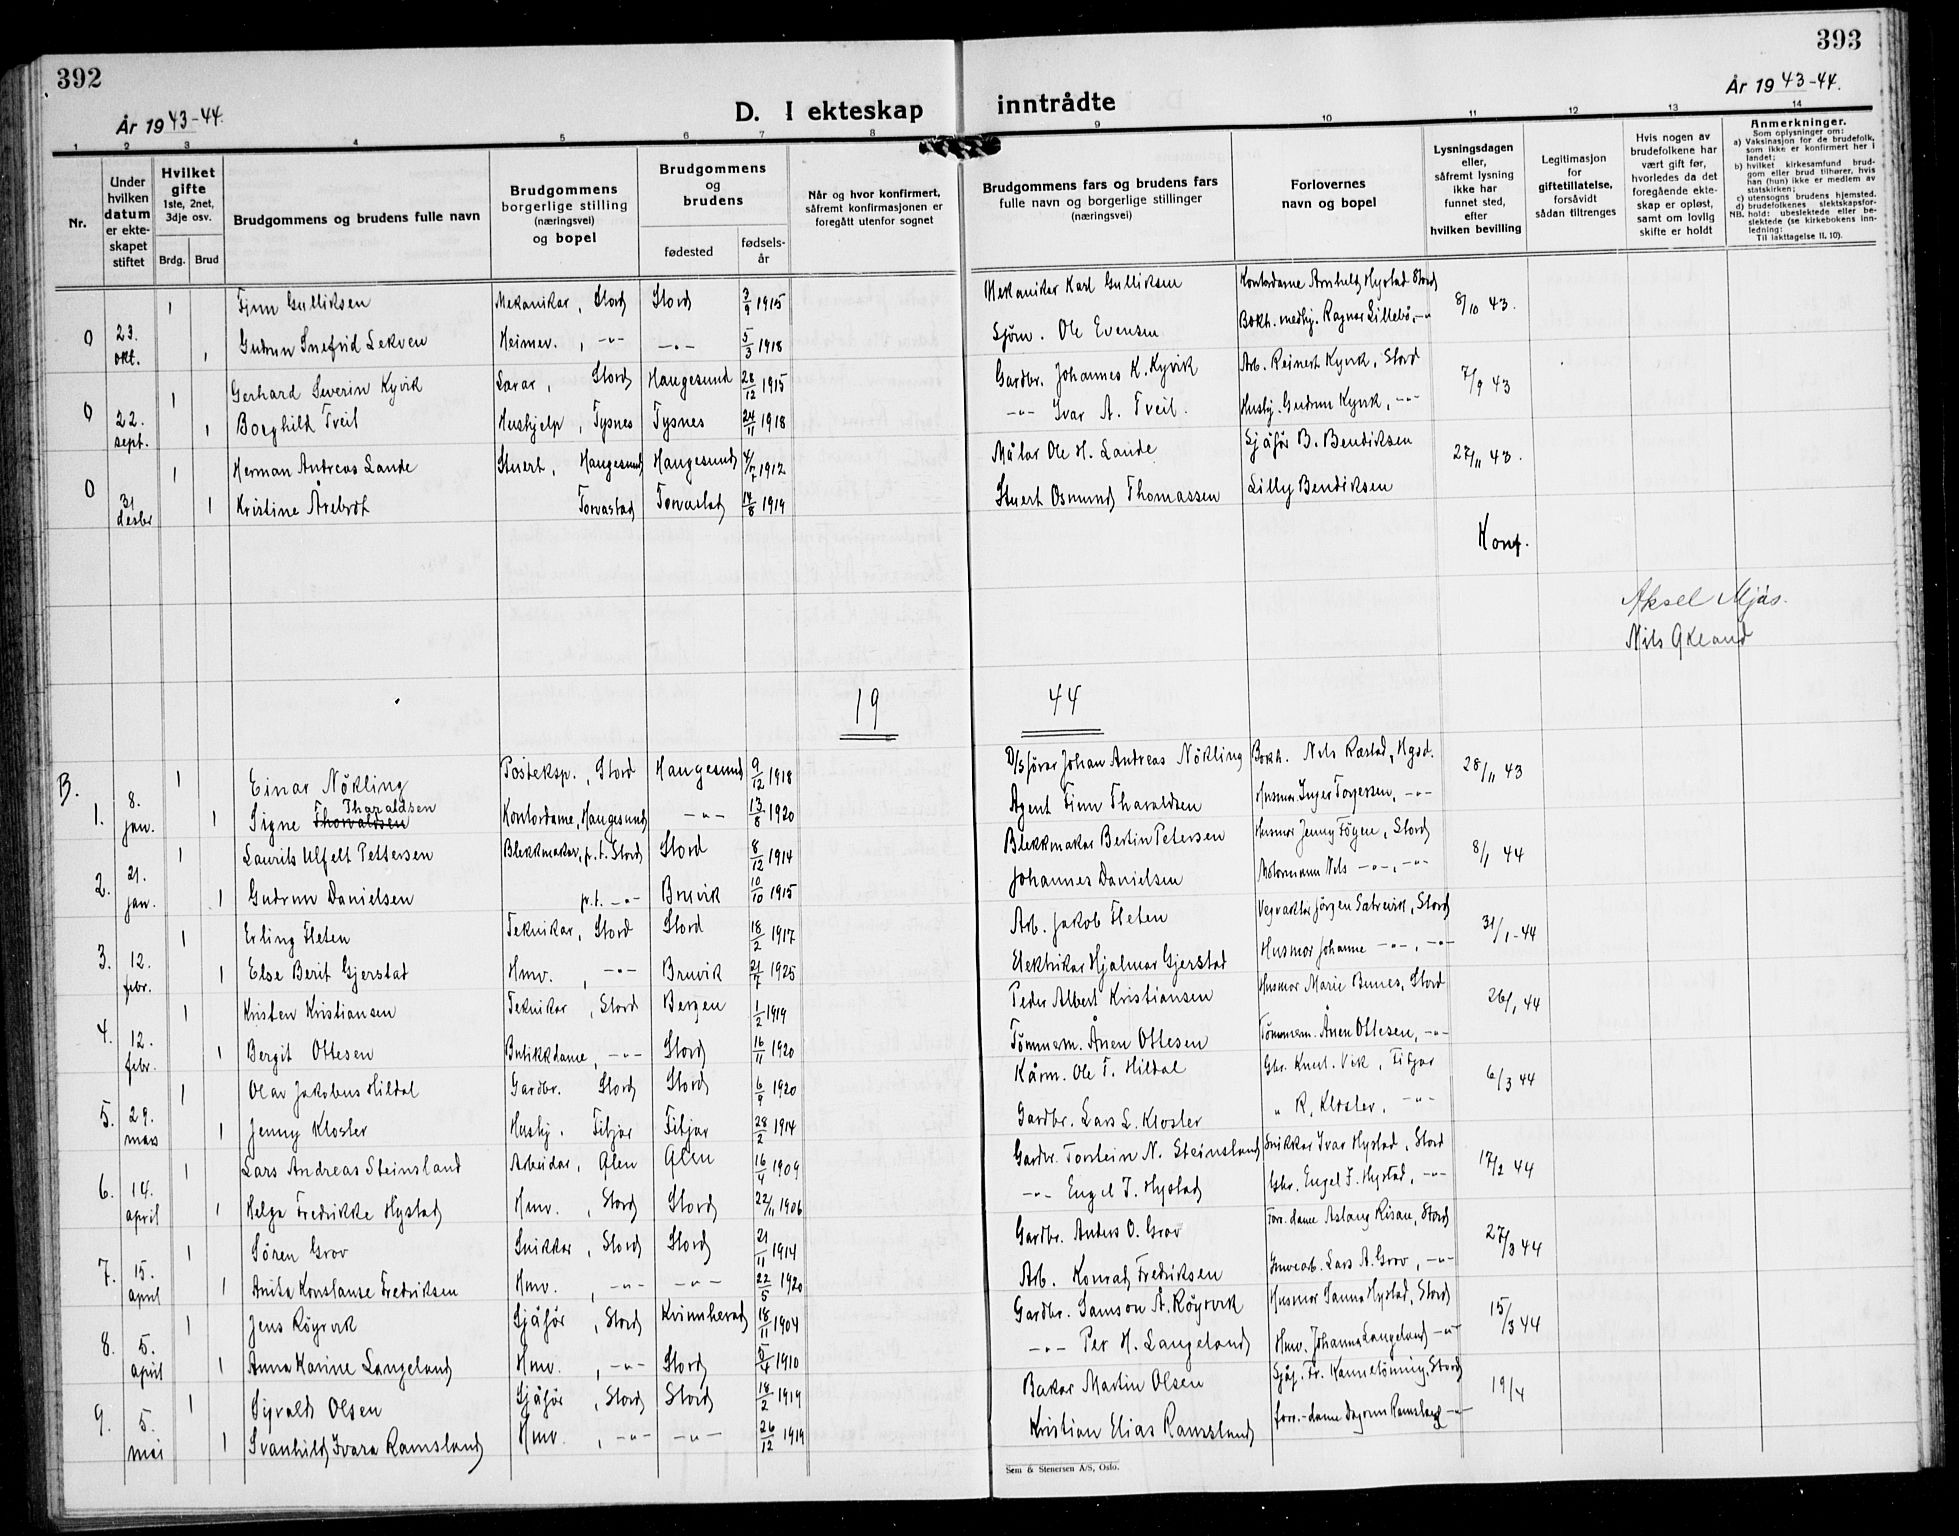 392
År 1943-44.
D. I ekteskap
1 2 3 4 5 6 7 8
Nr.
Under hvilken datum er ekteskapet stiftet
Hvilket gifte 1ste, 2net, 3dje osv.
Brdg. Brud
Brudgommens og brudens fulle navn
Brudgommens borgerlige stilling (næringsvei) og bopel
Brudgommens og brudens
fødested fødselsår
Når og hvor konfirmert, såfremt konfirmasjonen er foregått utenfor sognet
1 Finn Gulliksen Mekanikar, Stord Stord 3/9 1915
0 23. okt. 1 Gudrun Snefrid Lekven Heimev. , -"- -"- 5/3 1918
1 Gerhard Severin Kyvik Lærar, Stord Haugesund 28/12 1915
0 22. sept. 1 Borghild Tveit Hushjelp, Tysnes Tysnes 24/11 1918
1 Herman Andreas Lande Stuert, Haugesund Haugesund 1912
0 31 desbr 1 Kristine Årebrot Torvastad Torvastad 14/8 1914
19
B. 1 Einar Nökling Posteksp., Stord Haugesund 9/12 1918
1. 8. jan. 1 Signe Thorvaldsen Tharaldsen Kontordame, Haugesund -"- 13/8 1920
1 Laurits Ulfelt Pettersen Blekkmakar, p.t. Stord Stord 8/12 1914
2. 21. jan. 1 Gudrun Danielsen p.t. -"- Bruvik 10/10 1915
1 Erling Fleten Teknikar, Stord Stord 18/2 1917
3. 12. febr. 1 Else Berit Gjerstad Hmv. , -"- Bruvik 21/7 1925
1 Kristen Kristiansen Teknikar, Stord Bergen 1/2 1919
4. 12. febr. 1 Bergit Ottesen Butikkdame, -"- Stord 16/11 1920
1 Olav Jakobus Hildal Gardbr. Stord Stord 6/9 1920
5. 29. mars 1 Jenny Kloster Hushj. Fitjar Fitjar 28/2 1914
1 Lars Andreas Steinsland Arbeidar, Ølen Ølen 16/4 1909
6. 14. april 1 Helga Fredrikke Hystad Hmv. , Stord Stord 22/11 1906
1 Sören Grov Snikkar, Stord Stord 21/11 1914
7. 15. april 1 Anita Konstanse Fredriksen Hmv. , -"- -"- 22/5 1920
1 Jens Röyrvik Sjåför, Stord Kvinnherad 18/11 1904
8. 5. april 1 Anna Karine Langeland Hmv. , -"- Stord 5/4 1910
1 Sigvald Olsen Sjåför, Stord Stord 18/2 1919
9. 5. mai 1 Svanhild Ivara Ramsland Hmv. , -"- -"- 26/12 1919
393
År 1943-44.
inntrådte
9 10 11 12 13 14
Brudgommens fars og brudens fars fulle navn og borgerlige stillinger (næringsvei)
Forlovernes navn og bopel
Lysningsdagen eller, såfremt lysning ikke har funnet sted, efter hvilken bevilling
Legitimasjon for giftetillatelse, forsåvidt sådan tiltrenges
Hvis nogen av brudefolkene har vært gift før, hvorledes da det foregående ekteskap er opløst, samt om lovlig skifte er holdt
Anmerkninger.
Som oplysninger om:
a) Vaksinasjon for de brudefolk, som ikke er konfirmert her i landet;
b) hvilket kirkesamfund brudgom eller brud tilhører, hvis han (hun) ikke er medlem av statskirken;
c) utensogns brudens hjemsted.
d) brudefolkenes slektskapsforhold: ubeslektede eller beslektede (se kirkebokens innledning:
NB. Til iakttagelse II. 10).
Mekanikar Karl Gulliksen Kontordame Arnhild Hystad Stord 8/10 43.
Sjöm. Ole Evensen Bokh. medhj. Ragnar Lillebö, -"-
Gardbr. Johannes K. Kyvik Arb. Reinert Kyvik, Stord 7/9 43
-"- Ivar A. Tveit. Hushj. Gudrun Kyvik, -"-
Målar Ole H. Lande Sjåför B. Bendiksen 27/11 43.
Stuert Osmund Thomassen Lilly Bendiksen
Konf.
Aksel Mjås.
Nils Økland
44
D/S förar Johan Andreas Nökling Bokh. Nils Røstad, Hgsd. 28/11 43
Agent Finn Tharaldsen Husmor Inger Torgersen, -"-
Blekkmakar Bertin Petersen Husmor Jenny Fögen, Stord 8/1 44
Johannes Danielsen Motormann Nils -"-, -"-
Arb. Jakob Fleten Vegvaktar Jörgen Sætrevik, Stord 31/1-44
Elektrikar Hjalmar Gjerstad Husmor Johanne -"-, -"-
Peder Albert Kristiansen Husmor Marie Bunes, Stord 26/1 44
Tömmerm. Ånen Ottesen Tömmerm. Ånen Ottesen, -"-
Kårm. Ole T. Hildal Gbr. Knut Vik, Fitjar 6/3 44
Gardbr. Lars L. Kloster " R. Kloster, -"-
Gardbr. Torstein N. Steinsland Snikkar Ivar Hystad, Stord 17/2 44
-"- Engel J. Hystad Gbr. Engel J. Hystad, -"-
Gardbr. Anders O. Grov Forr. dame Aslaug Risan, Stord 27/3 44
Arb. Konrad Fredriksen Lars A. Grov, -"-
Gardbr. Samson Å. Röyrvik Husmor Sanna Hystad, Stord 15/3 44
-"- Per H. Langeland Hmv. Johanna Langeland -"-
Bakar Martin Olsen Sjåf. Fr. Kannelönning, Stord 19/4
Kristian Elias Ramsland forr.-dame Dagrun Ramsland -"-
Sem & Stenersen A/S, Oslo.